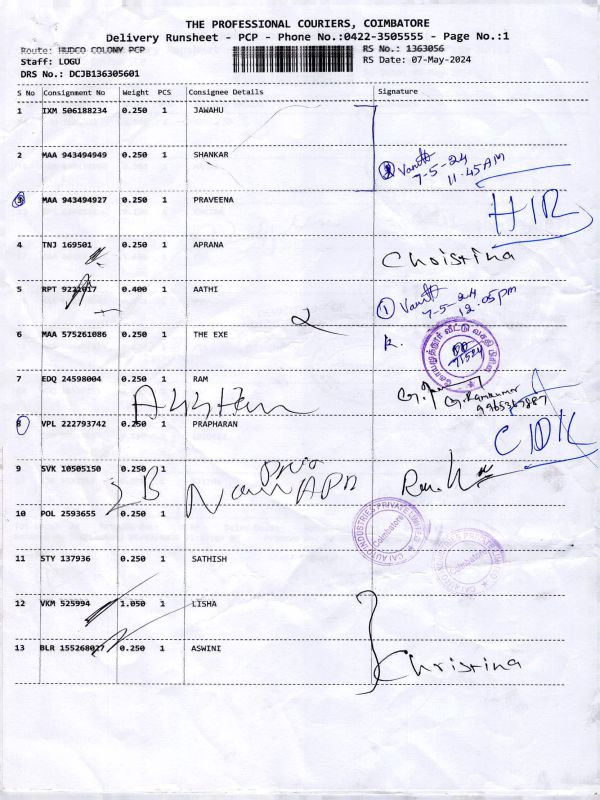 THE PROFESSIONAL COURIERS, COIMBATORE
Delivery Runsheet - PCP - Phone No.:0422-3505555 - Page No.:1
Route: HUDCO COLONY PCP
RS No.: 1363056
Staff: LOGU
RS Date: 07-May-2024
DRS No.: DCJB136305601
S No Consignment No Weight PCS Consignee Details Signature
1 IXM 506188234 0.250 1 JAWAHU
2 MAA 943494949 0.250 1 SHANKAR
7-5-24
11.45AM
3 MAA 943494927 0.250 1 PRAVEENA
4 TNJ 169501 0.250 1 APRANA
Christina
5 RPT 0.400 1 AATHI
1
7-5-24
12.05pm
6 MAA 575261086 0.250 1 THE EXE
k.
7 EDQ 24598004 0.250 1 RAM
G. Ramkumar
8 VPL 222793742 0.250 1 PRAPHARAN
9 SVK 10505150 0.250 1
10 POL 2593655 0.250 1
CAI AUTO INDUSTRIES PRIVATE LIMITED
Coimbatore
11 STY 137936 0.250 1 SATHISH
12 VKM 525994 1.050 1 LISHA
13 BLR 155268027 0.250 1 ASWINI
Christina